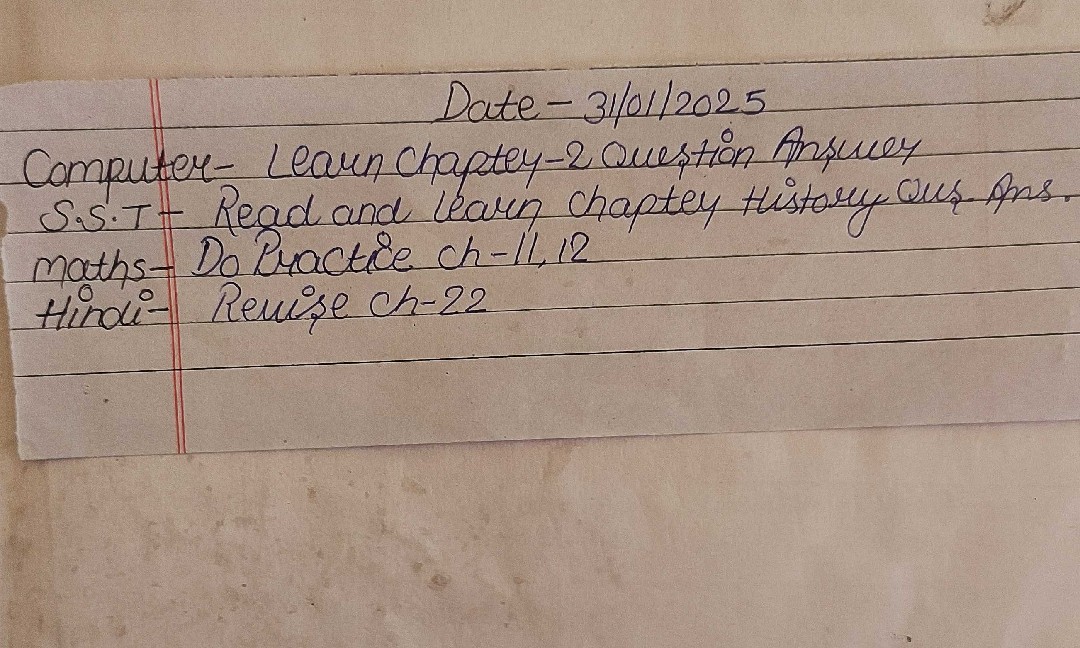 Date - 31/01/2025
Computer - Learn Chapter-2 Question Answer
S.S.T - Read and learn chapter History Qus Ans.
maths - Do Practice ch-11, 12
Hindi - Revise ch-22